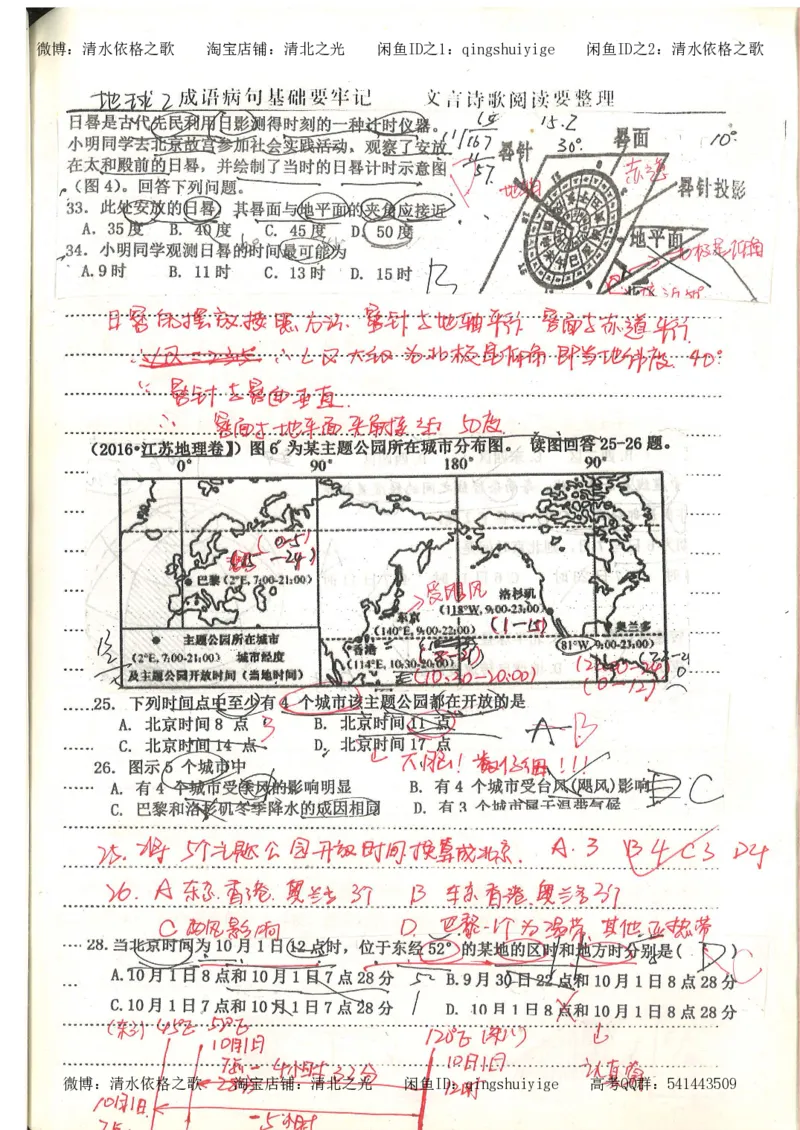 微博：清水依格之歌 淘宝店铺：清北之光 闲鱼ID之1：qingshuiyige 闲鱼ID之2：清水依格之歌
地球2 成语病句基础要牢记 文言诗歌阅读要整理
日晷是古代先民利用日影测得时刻的一种计时仪器。
小明同学去北京故宫参加社会实践活动，观察了安放
在太和殿前的日晷，并绘制了当时的日晷计时示意图
（图4）。回答下列问题。
33．此处安放的日晷，其晷面与地平面的夹角应接近
A．35度 B．40度 C．45度 D．50度
34．小明同学观测日晷的时间最可能为
A.9时 B．11时 C．13时 D．15时
15.2
30°
10°
晷针
晷面
晷针投影
地平面
日晷的摆放按照方法：晷针与地轴平行 晷面与赤道平行
为北极星仰角 即当地纬度 40°
∵ 晷针与晷面垂直
∴ 晷面与地平面夹角接近 50度
(2016•江苏地理卷】) 图 6 为某主题公园所在城市分布图。 读图回答 25-26 题。
0° 90° 180° 90°
巴黎（2°E, 7:00-21:00）
受飓风
洛杉矶
（118°W, 9:00-23:00）
东京
（140°E, 9:00-22:00）
(1—15)
奥兰多
（81°W, 9:00-23:00）
香港
（114°E, 10:30-20:00）
(10:30-20:00)
(0-12)
主题公园所在城市
（2°E, 7:00-21:00） 城市经度
及主题公园开放时间（当地时间）
25．下列时间点中至少有 4 个城市该主题公园都在开放的是
A．北京时间 8 点 B．北京时间 11 点
C．北京时间 14 点 D．北京时间 17 点
A B
26．图示 5 个城市中
A．有 4 个城市受季风的影响明显 B．有 4 个城市受台风(飓风)影响
C．巴黎和洛杉矶冬季降水的成因相同 D．有 3 个城市属于温带气候
C
25. 将5个主题公园开放时间换算成北京. A. 3 B 4 C 3 D 4
26. A 东京.香港.奥兰多 3个 B 东京.香港.奥兰多 3个
C 西风影响 D. 巴黎一个为温带，其他亚热带
28.当北京时间为 10 月 1 日 12 点时，位于东经 52° 的某地的区时和地方时分别是( D )
C
A.10 月 1 日 8 点和 10 月 1 日 7 点 28 分 B.9 月 30 日 22 点和 10 月 1 日 8 点 28 分
C.10 月 1 日 7 点和 10 月 1 日 7 点 28 分 D．10 月 1 日 8 点和 10 月 1 日 8 点 28 分
(东3) 45°E 52°E 120°E (东八)
10月1日 10月1日
认真啊
微博：清水依格之歌 淘宝店铺：清北之光 闲鱼ID：qingshuiyige 高考QQ群：541443509
10月1日